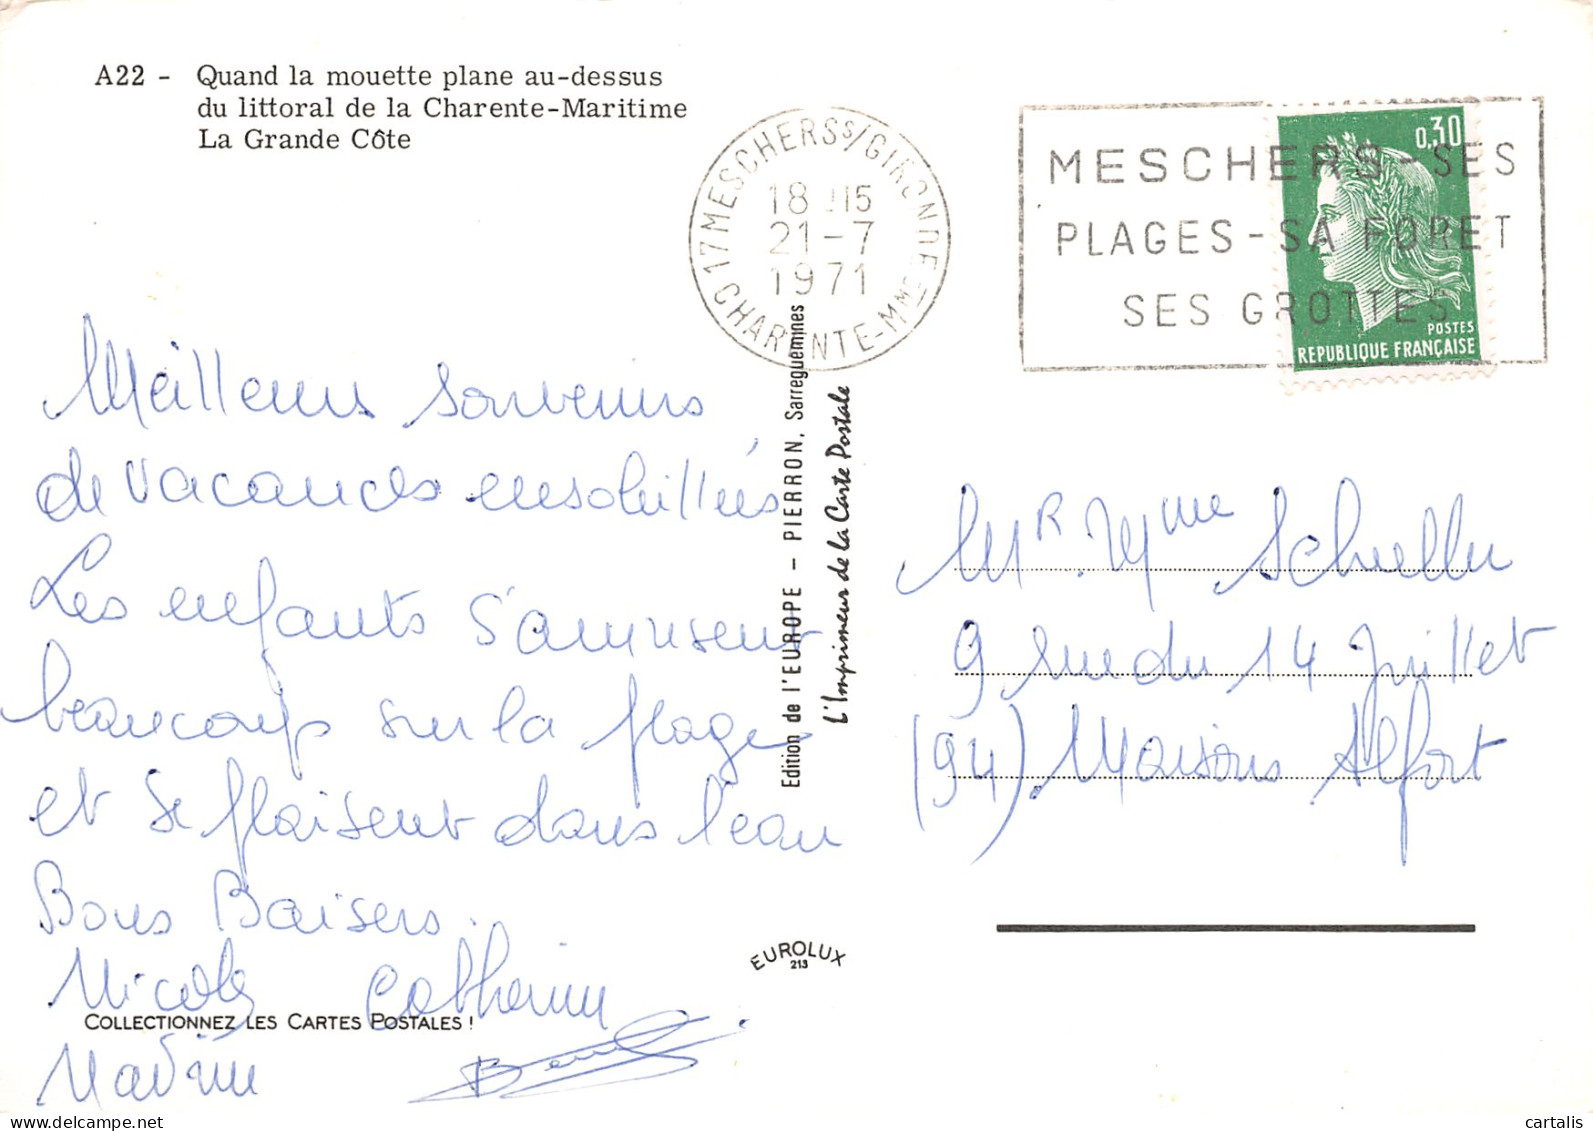 A22 - Quand la mouette plane au-dessus
du littoral de la Charente-Maritime
La Grande Côte
17 MESCHERS S/GIRONDE
18 H15
21-7
1971
CHARENTE-MME
MESCHERS-SES
PLAGES-SA FORET
SES GROTTES
0,30
POSTES
REPUBLIQUE FRANÇAISE
Meilleurs souvenirs
de vacances ensoleillées
Les enfants s'amusent
beaucoup sur la plage
et se plaisent dans l'eau
Bons Baisers.
Nicole Catherine
Nadine
Edition de l'EUROPE - PIERRON, Sarreguemines
L'Imprimeur de la Carte Postale
Mr. Mme Schueller
9 rue du 14 Juillet
(94). Maisons Alfort
EUROLUX
213
COLLECTIONNEZ LES CARTES POSTALES !
cartalis